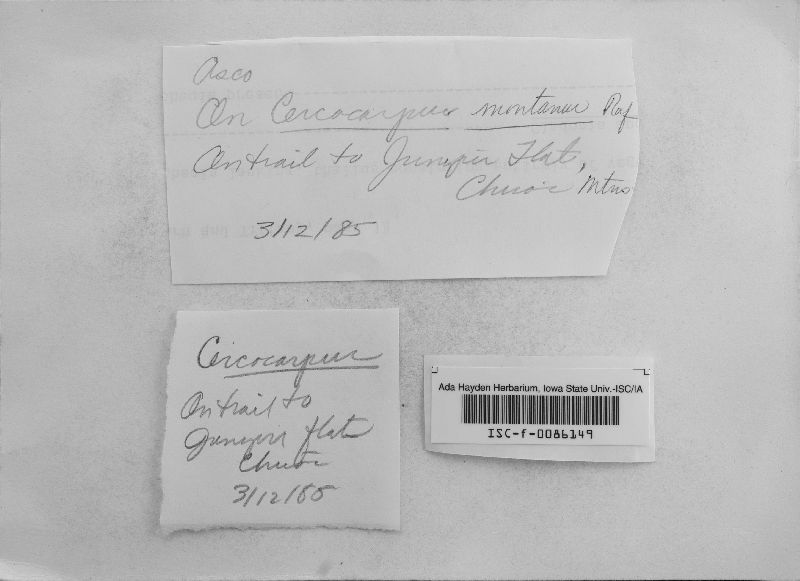 Asco
On Cercocarpus montanus Raf
On trail to Juniper Flat,
Chisos Mtns
3/12/85
Cercocarpus
On trail to
Juniper flat
Chisos
3/12/85
Ada Hayden Herbarium, Iowa State Univ.-ISC/IA
ISC-f-0086149